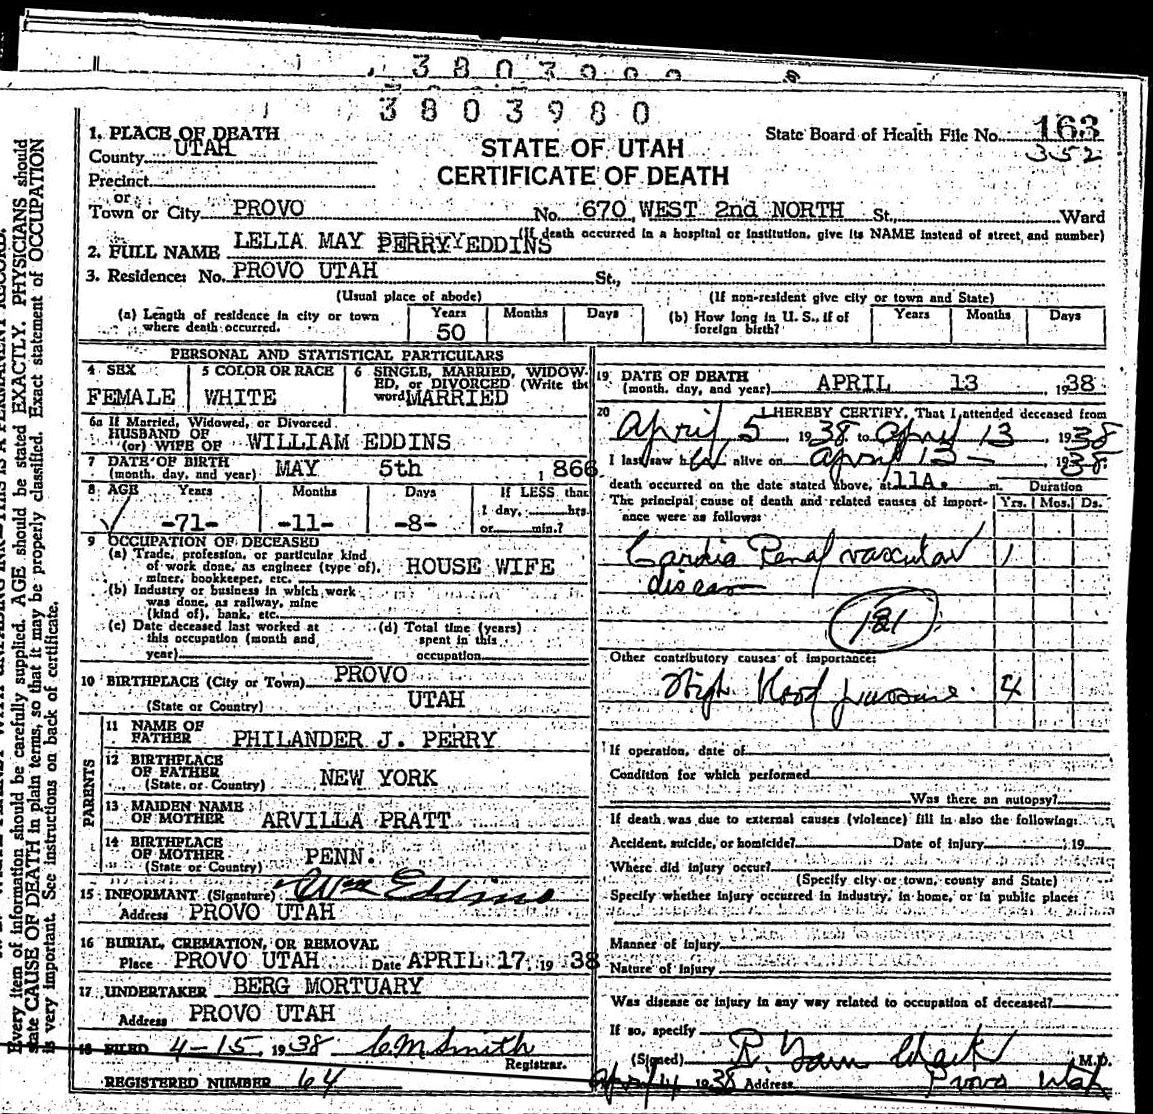 3803980
3803980
State Board of Health File No. 163
352
STATE OF UTAH
CERTIFICATE OF DEATH
1. PLACE OF DEATH
County UTAH
Precinct
or
Town or City PROVO No. 670 WEST 2nd NORTH St., Ward
(If death occurred in a hospital or institution, give its NAME instead of street and number)
2. FULL NAME LELIA MAY PERRY EDDINS
3. Residence: No. PROVO UTAH St.,
(Usual place of abode) (If non-resident give city or town and State)
(a) Length of residence in city or town where death occurred. Years 50 Months Days
(b) How long in U. S., if of foreign birth? Years Months Days
PERSONAL AND STATISTICAL PARTICULARS
4 SEX FEMALE
5 COLOR OR RACE WHITE
6 SINGLE, MARRIED, WIDOW-
ED, or DIVORCED (Write the
word) MARRIED
6a If Married, Widowed, or Divorced
HUSBAND OF
(or) WIFE OF WILLIAM EDDINS
7 DATE OF BIRTH
(month, day, and year) MAY 5th, 1866
8 AGE Years Months Days If LESS than
-71- -11- -8- 1 day, hrs.
or min.?
9 OCCUPATION OF DECEASED
(a) Trade, profession, or particular kind
of work done, as engineer (type of),
miner, bookkeeper, etc. HOUSE WIFE
(b) Industry or business in which work
was done, as railway, mine
(kind of), bank, etc.
(c) Date deceased last worked at
this occupation (month and
year)
(d) Total time (years)
spent in this
occupation
10 BIRTHPLACE (City or Town) PROVO
(State or Country) UTAH
PARENTS
11 NAME OF
FATHER PHILANDER J. PERRY
12 BIRTHPLACE
OF FATHER NEW YORK
(State or Country)
13 MAIDEN NAME
OF MOTHER ARVILLA PRATT
14 BIRTHPLACE
OF MOTHER PENN.
(State or Country)
15 INFORMANT (Signature) Wm Eddins
Address PROVO UTAH
16 BURIAL, CREMATION, OR REMOVAL
Place PROVO UTAH Date APRIL 17, 1938
17 UNDERTAKER BERG MORTUARY
Address PROVO UTAH
18 FILED 4-15, 1938 C.M. Smith
Registrar.
REGISTERED NUMBER 64
19 DATE OF DEATH
(month, day, and year) APRIL 13, 1938
20 I HEREBY CERTIFY, That I attended deceased from
April 5 1938 to April 13, 1938
I last saw her alive on April 13-, 1938
death occurred on the date stated above, at 11A. m. Duration
The principal cause of death and related causes of import-
ance were as follows: Yrs. Mos. Ds.
Cardio Renal vascular 1
disease
131
Other contributory causes of importance:
High blood pressure 4
If operation, date of
Condition for which performed
Was there an autopsy?
If death was due to external causes (violence) fill in also the following:
Accident, suicide, or homicide? Date of injury 19
Where did injury occur?
(Specify city or town, county and State)
Specify whether injury occurred in industry, in home, or in public place:
Manner of injury
Nature of injury
Was disease or injury in any way related to occupation of deceased?
If so, specify
(Signed) Clark M.D.
April 14 1938 Address Provo Utah
Every item of information should be carefully supplied. AGE should be stated EXACTLY. PHYSICIANS should
state CAUSE OF DEATH in plain terms, so that it may be properly classified. Exact statement of OCCUPATION
is very important. See instructions on back of certificate.